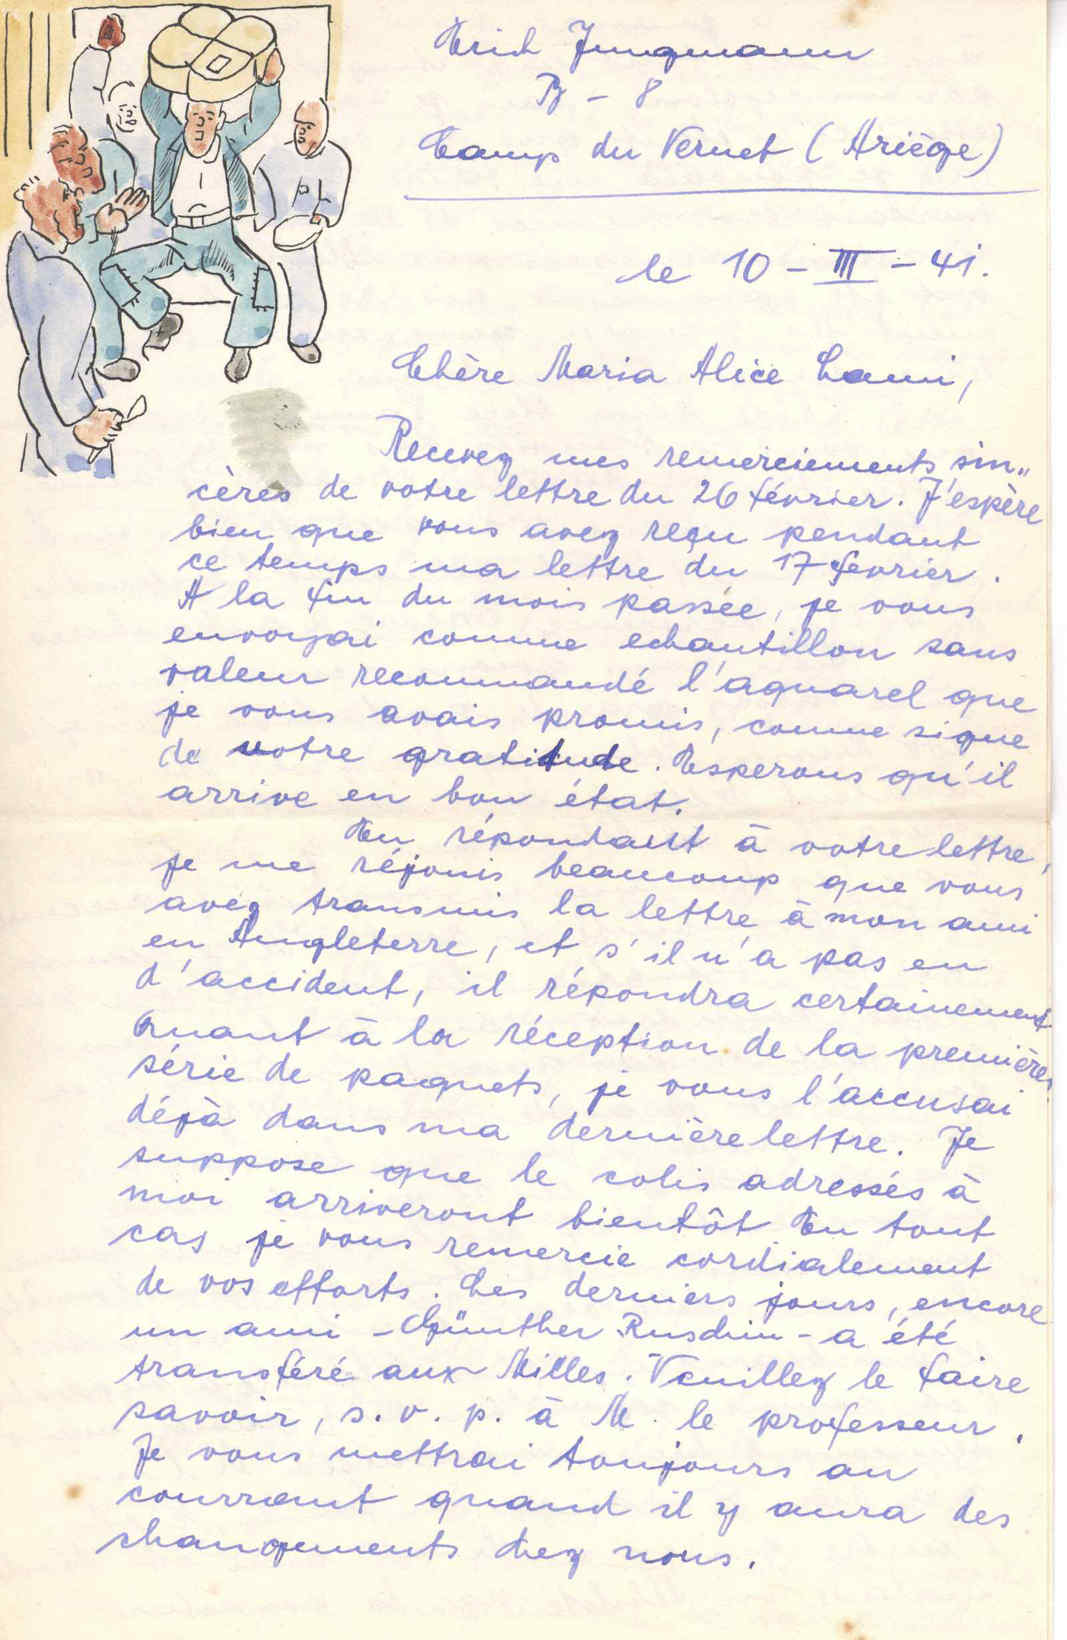 Erich Jungmann
B - 8
Camp du Vernet (Ariège)
le 10 - III - 41.
Chère Maria Alice Lami,
Recevez mes remerciements sin„
cères de votre lettre du 26 février. J'espère
bien que vous avez reçu pendant
ce temps ma lettre du 17 fevrier.
A la fin du mois passée, je vous
envoyai comme echantillon sans
valeur recommandé l'aquarel que
je vous avais promis, comme signe
de notre gratitude. Esperons qu'il
arrive en bon état.
En répondant à votre lettre,
je me réjouis beaucoup que vous
avez transmis la lettre à mon ami
en Angleterre, et s'il n'a pas eu
d'accident, il répondra certainement
Quant à la réception de la première
série de paquets, je vous l'accusai
déjà dans ma dernière lettre. Je
suppose que le colis adressés à
moi arriveront bientôt En tout
cas je vous remercie cordialement
de vos efforts. Les derniers jours, encore
un ami - Günther Ruschin - a été
transféré aux Milles. Veuillez le faire
savoir, s. v. p. à M. le professeur.
Je vous mettrai toujours au
courrant quand il y aura des
changements chez nous.